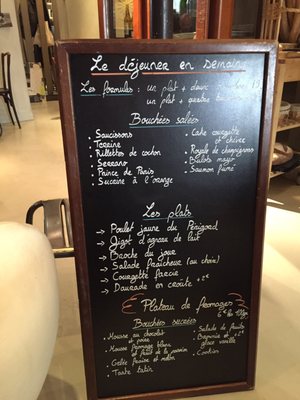 Le déjeuner en semaine
Les formules : un plat + deux
un plat + quatre
Bouchées salées
- Saucissons
- Terrine
- Rillettes de cochon
- Serrano
- Prince de Paris
- Sucrine à l'orange
- Cake courgette et chèvre
- Royale de champignons
- Bulots mayo
- Saumon fumé
Les plats
→ Poulet jaune du Périgord
→ Gigot d'agneau de lait
→ Broche du jour
→ Salade fraîcheur (au choix)
→ Courgette farcie
→ Daurade en croute +2€
Plateau de fromages
6€ les
Bouchées sucrées
- Mousse au chocolat
et poire
- Mousse fromage blanc
et fruit de la passion
- Gelée fraise et melon
- Tarte tatin
- Salade de fruits
- Brownie et
glace vanille
- Cookies